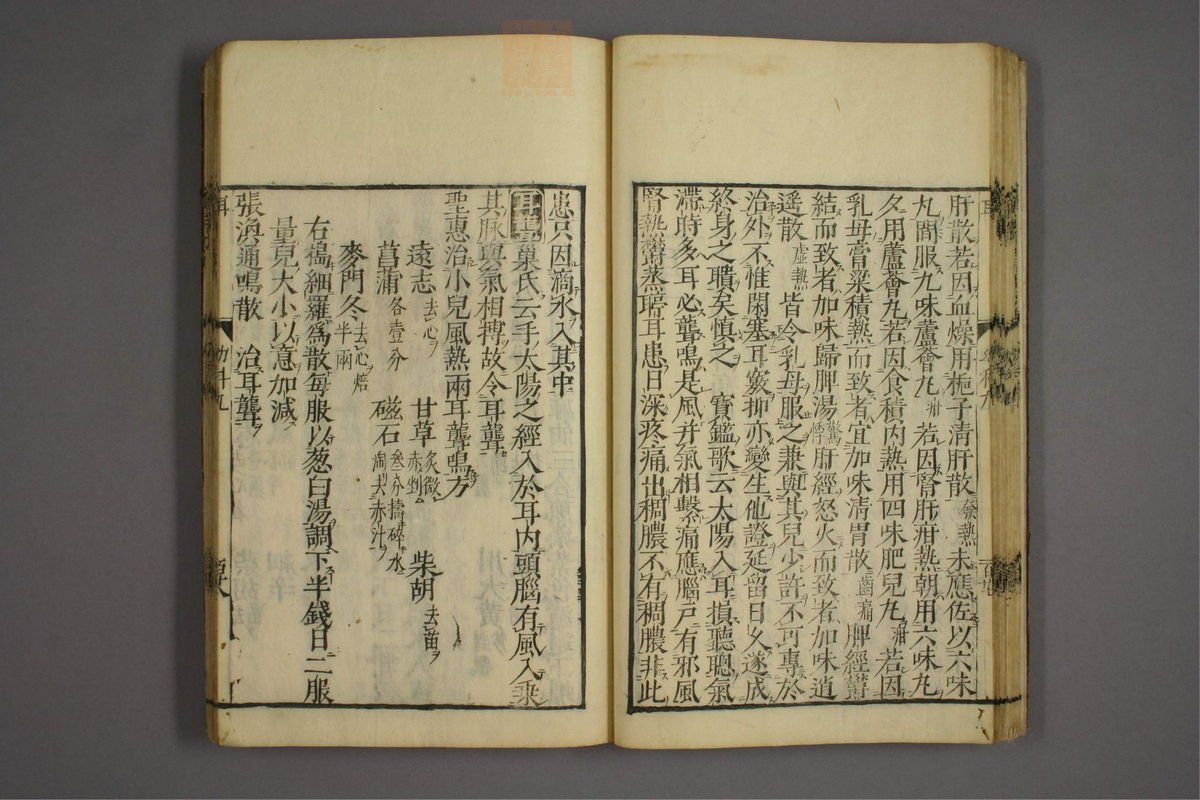 肝散若因血燥用梔子清肝散發熱未應佐以六味
丸間服九味蘆薈丸疳若因腎肝疳熱朝用六味丸
夕用蘆薈丸若因食積内熱用四味肥兒丸疳若因
乳母膏粱積熱而致者宜加味清胃散齒痛脾經鬱
結而致者加味歸脾湯驚悸肝經怒火而致者加味逍
遥散虚熱皆令乳母服之兼與其兒少許不可專於
治外不惟閉塞耳竅抑亦變生他證延留日久遂成
終身之聵矣慎之 寳鑑歌云太陽入耳損聽聰氣
滯時多耳必聾鳴是風并氣相擊痛應腦戸有邪風
腎熱鬱蒸聤耳患日深疼痛出稠膿不有稠膿非此
患只因滴水入其中
耳聾巢氏云手太陽之經入於耳内頭腦有風入乘
其脉與氣相摶故令耳聾
聖惠治小兒風熱兩耳聾鳴方
遠志去心 甘草炙微赤剉 柴胡去苗
菖蒲各壹分 磁石叁分擣碎水淘去赤汁
麥門冬去心焙半兩
右擣細羅爲散每服以葱白湯調下半錢日二服
量兒大小以意加減
張渙通鳴散 治耳聾
耳 幼科九